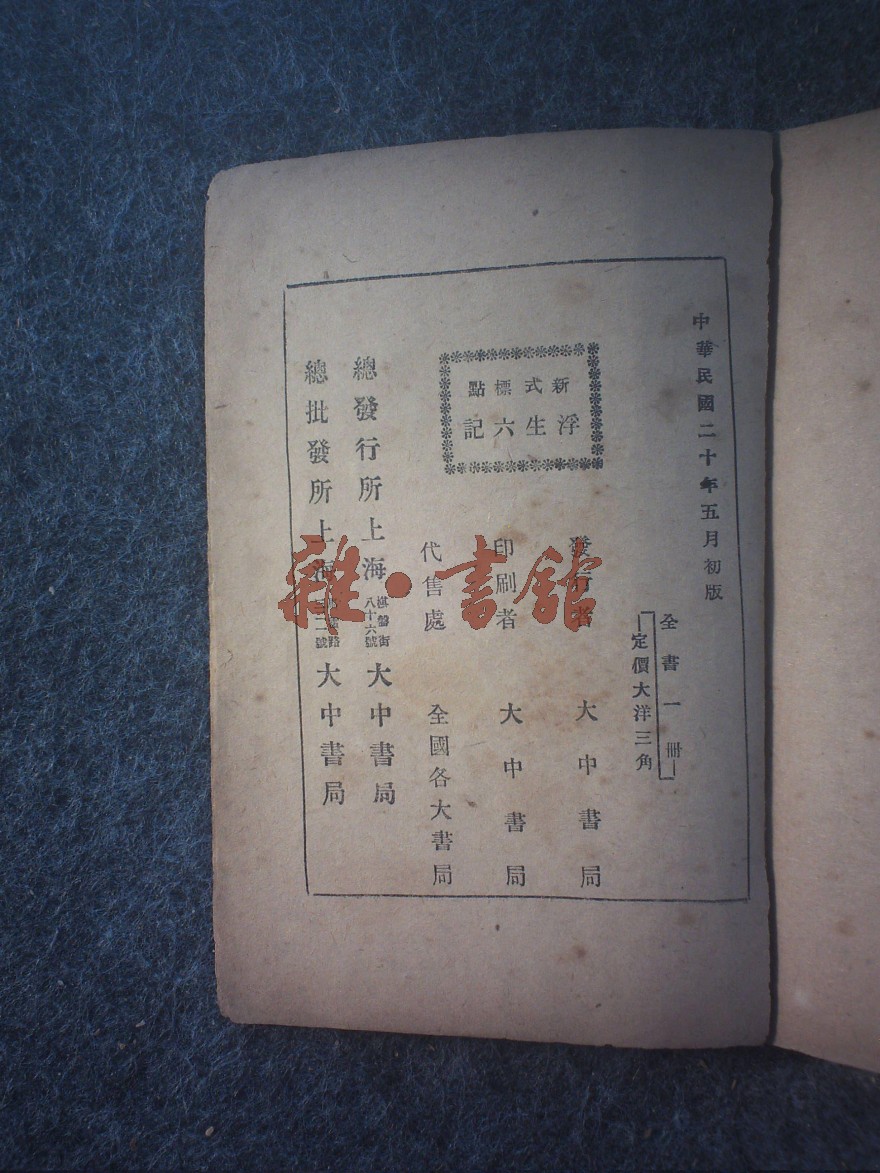 中華民國二十年五月初版
全書一冊
定價大洋三角
新式標點
浮生六記
發行者 大中書局
印刷者 大中書局
代售處 全國各大書局
總發行所上海棋盤街八十六號大中書局
總批發所上海路號大中書局
雜·書館